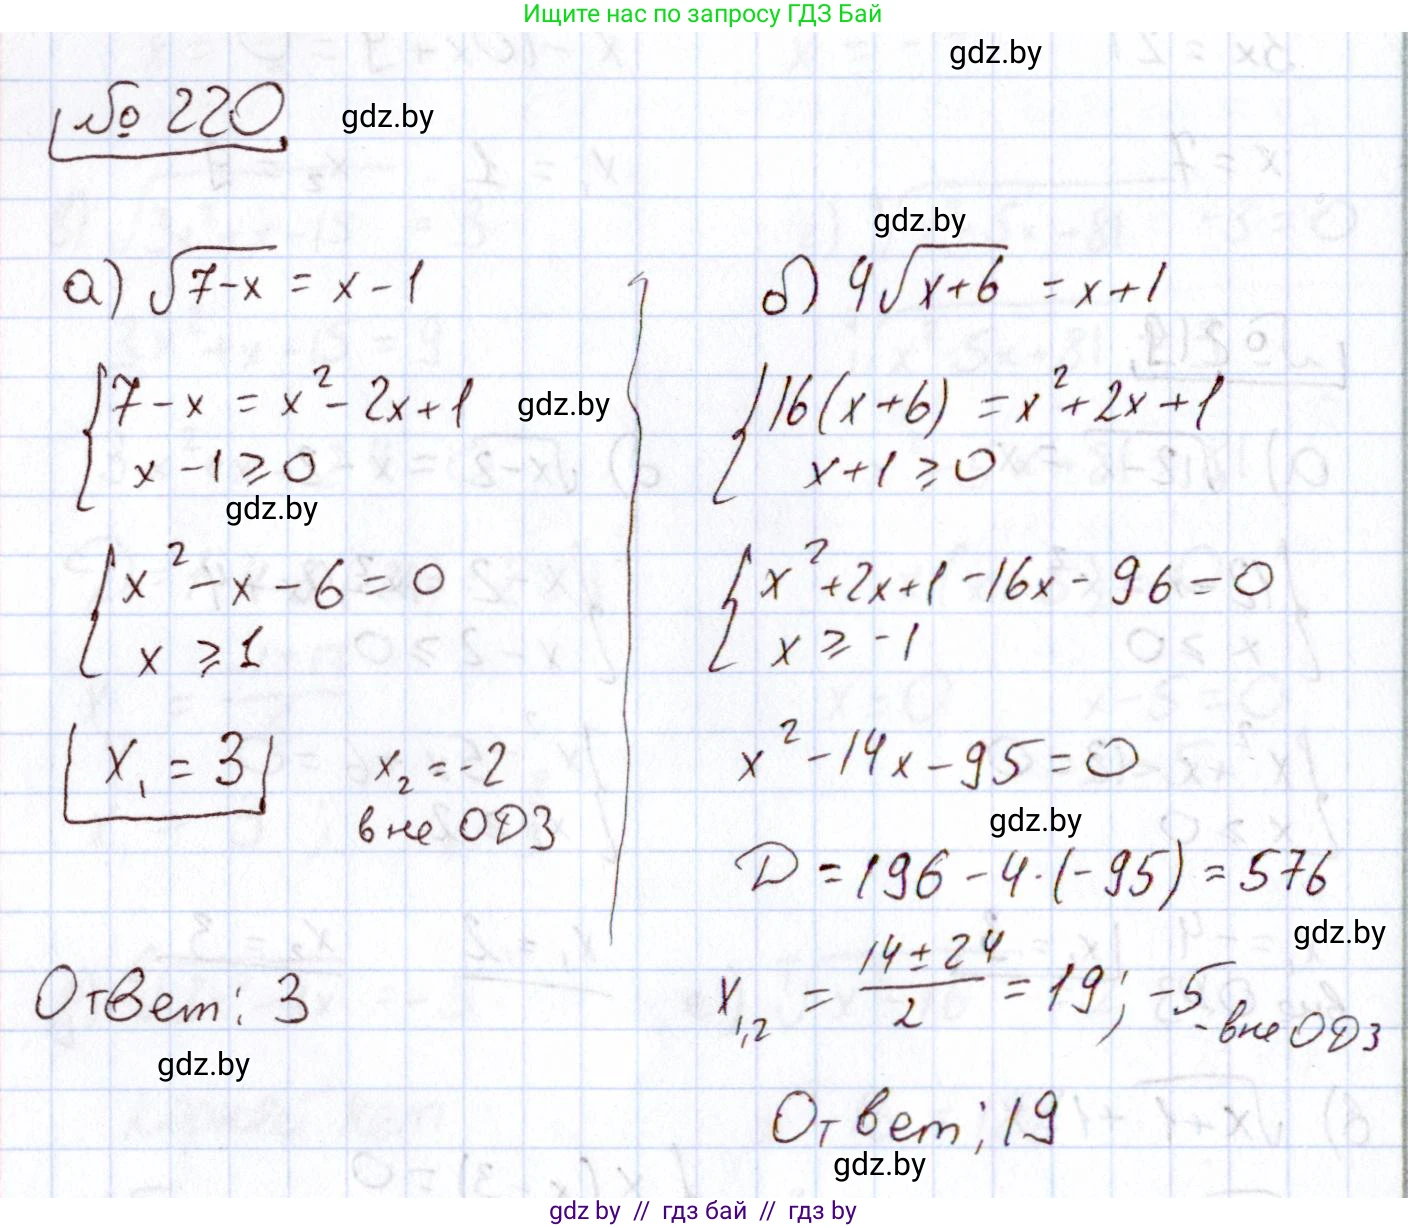 Ищите нас по запросу ГДЗ Бай
gdz.by
№ 220
gdz.by
gdz.by
а) √(7-x) = x - 1
{ 7 - x = x² - 2x + 1
gdz.by
x - 1 ⩾ 0
gdz.by
{ x² - x - 6 = 0
x ⩾ 1
x₁ = 3
x₂ = -2
вне ОДЗ
Ответ: 3
gdz.by
б) 4√(x+6) = x + 1
{ 16(x+6) = x² + 2x + 1
x + 1 ⩾ 0
{ x² + 2x + 1 - 16x - 96 = 0
x ⩾ -1
x² - 14x - 95 = 0
gdz.by
D = 196 - 4·(-95) = 576
gdz.by
x₁,₂ = (14 ± 24)/2 = 19; -5 - вне ОДЗ
Ответ: 19
gdz.by
gdz by // гдз бай // гдз by